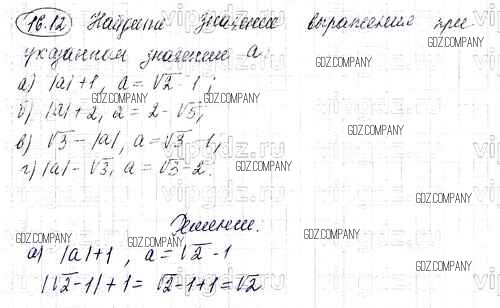 16.12 Найдите значение выражения при
указанном значение a:
а) |a|+1, a=√2-1;
б) |a|+2, a=2-√5;
в) √3-|a|, a=√3-1,
г) |a|-√3, a=√3-2.
Решение.
а) |a|+1, a=√2-1
|√2-1|+1=√2-1+1=√2
GDZ.COMPANY
GDZ.COMPANY
GDZ.COMPANY
GDZ.COMPANY
GDZ.COMPANY
GDZ.COMPANY
GDZ.COMPANY
GDZ.COMPANY
GDZ.COMPANY
GDZ.COMPANY
GDZ.COMPANY
GDZ.COMPANY